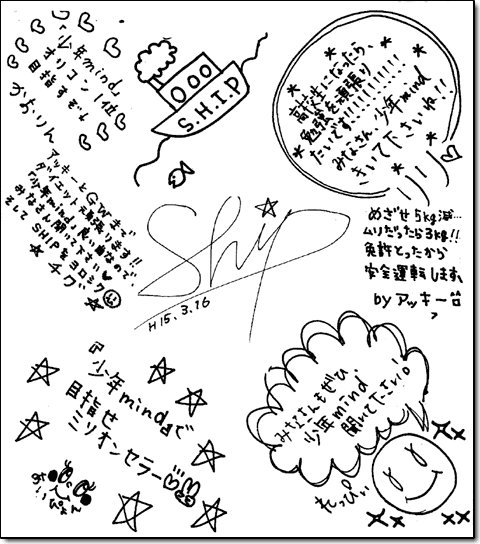 『少年mind』
オリコン1位
目指すぞ↓
かおりん
S.H.I.P
高校生になったら、
勉強を頑張り
たいです!!!!!!!!!!!
みなさん少年mind
きいて下さいね!!
アッキーとGWまで
ダイエット頑張ります!!
『少年mind』良い曲なので、
みなさん聞いて下さい♥
そしてSHIPをヨロシク
★チグ★
Ship
H15.3.16
めざせ5kg減…
ムリだったら3kg!!
免許とったから
安全運転します。
byアッキー
『少年mind』で
目指せ
ミリオンセラー
みいぴょん
みなさんもぜひ
少年mind
聞いて下さい!。
れっぴぃ